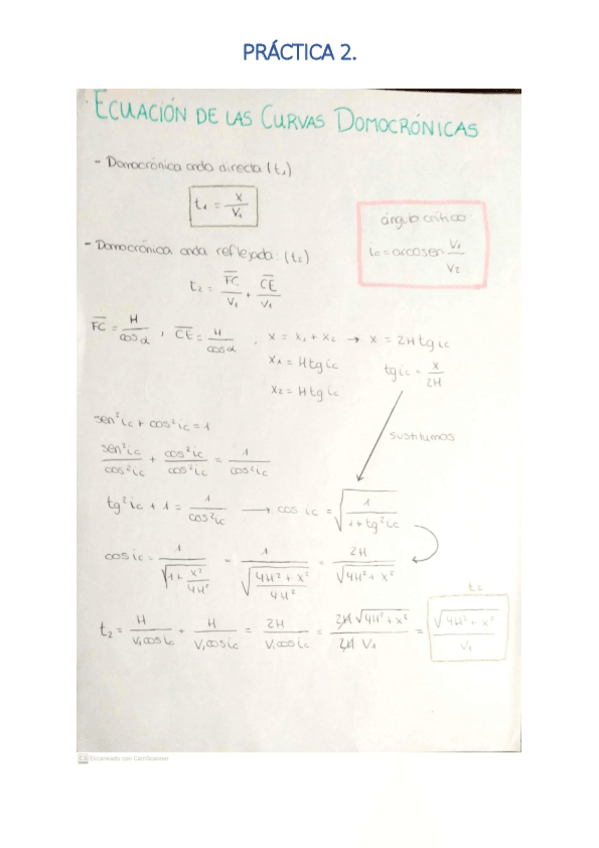 PRÁCTICA 2.
ECUACIÓN DE LAS CURVAS DOMOCRÓNICAS
- Domocrónica onda directa (t₁)
t₁ = x / V₁
ángulo crítico:
ic = arcosen V₁ / V₂
- Domocrónica onda reflejada: (t₂)
t₂ = FC / V₁ + CE / V₁
FC = H / cos α , CE = H / cos α , x = x₁ + x₂ → x = 2H tg ic
x₁ = H tg ic
tg ic = x / 2H
x₂ = H tg ic
sustituimos
sen² ic + cos² ic = 1
sen² ic / cos² ic + cos² ic / cos² ic = 1 / cos² ic
tg² ic + 1 = 1 / cos² ic → cos ic = √(1 / (1 + tg² ic))
cos ic = 1 / √(1 + x² / 4H²) = 1 / √((4H² + x²) / 4H²) = 2H / √(4H² + x²)
t₂
t₂ = H / V₁ cos ic + H / V₁ cos ic = 2H / V₁ cos ic = 2H √(4H² + x²) / 2H V₁ = √(4H² + x²) / V₁
CS Escaneado con CamScanner